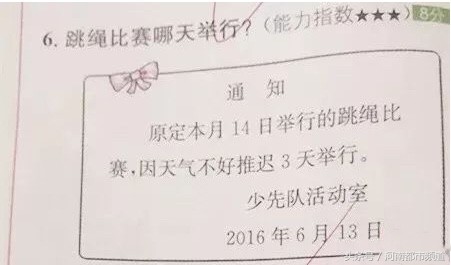 6. 跳绳比赛哪天举行？(能力指数★★★) 8分
通 知
原定本月 14 日举行的跳绳比
赛,因天气不好推迟 3 天举行。
少先队活动室
2016 年 6 月 13 日
头条号 / 河南都市频道